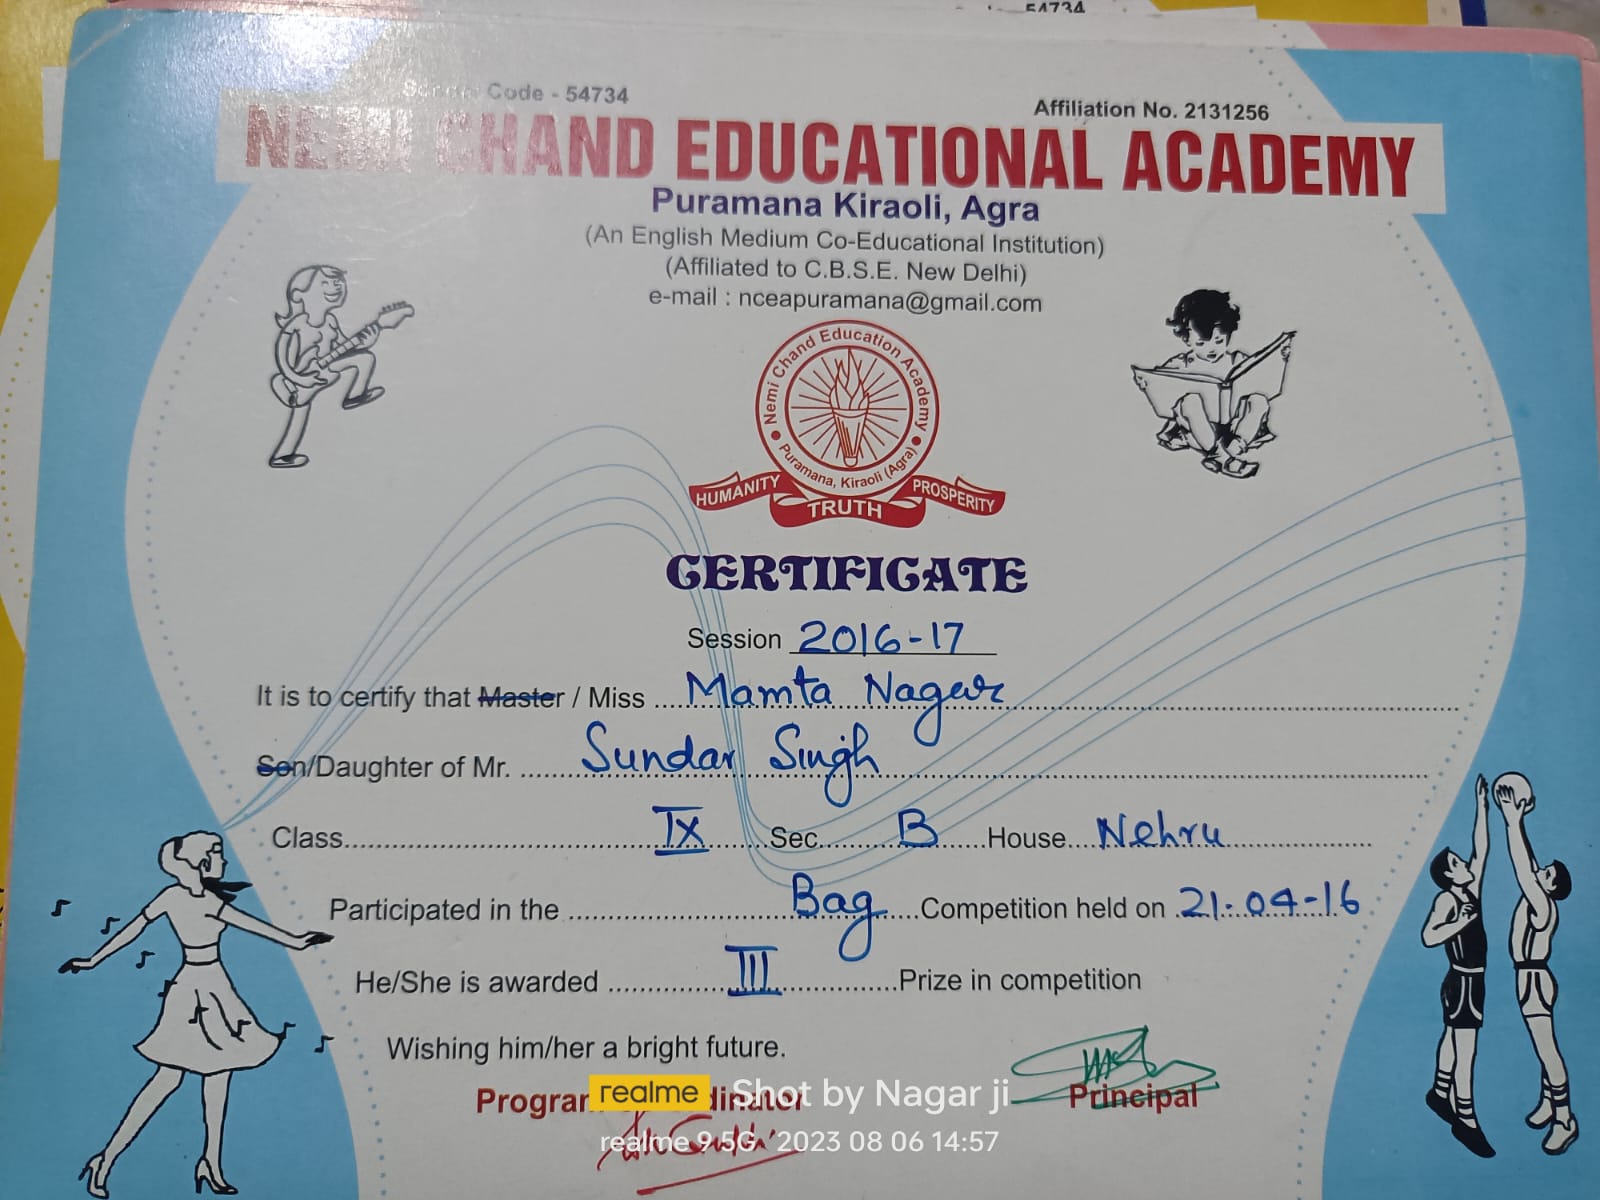 54734
Code - 54734
Affiliation No. 2131256
NEMI CHAND EDUCATIONAL ACADEMY
Puramana Kiraoli, Agra
(An English Medium Co-Educational Institution)
(Affiliated to C.B.S.E. New Delhi)
e-mail : nceapuramana@gmail.com
Nemi Chand Education Academy
Puramana, Kiraoli (Agra)
HUMANITY TRUTH PROSPERITY
CERTIFICATE
Session 2016-17
It is to certify that Master / Miss Mamta Nagar
Son/Daughter of Mr. Sundar Singh
Class IX Sec. B House Nehru
Participated in the Bag Competition held on 21-04-16
He/She is awarded III Prize in competition
Wishing him/her a bright future.
Principal
realme Shot by Nagar ji
realme 9 5G 2023 08 06 14:57